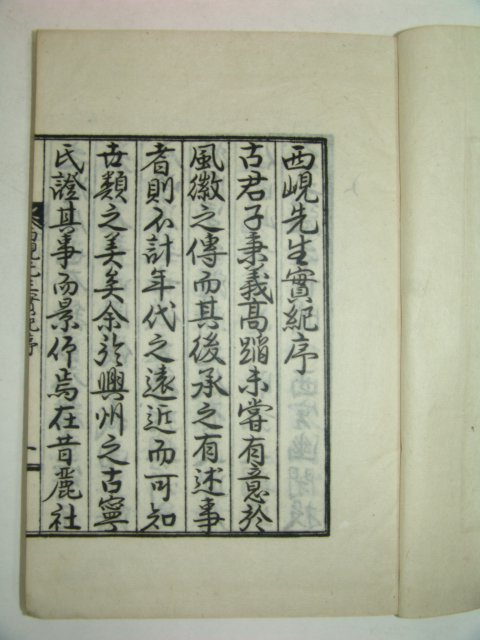 西峴先生實紀序
古君子秉義高蹈未嘗有意於
風徽之傳而其後承之有述事
者則不計年代之遠近而可知
世類之美矣余於興州之古寧
氏證其事而景仰焉在昔麗社
西峴先生實紀序